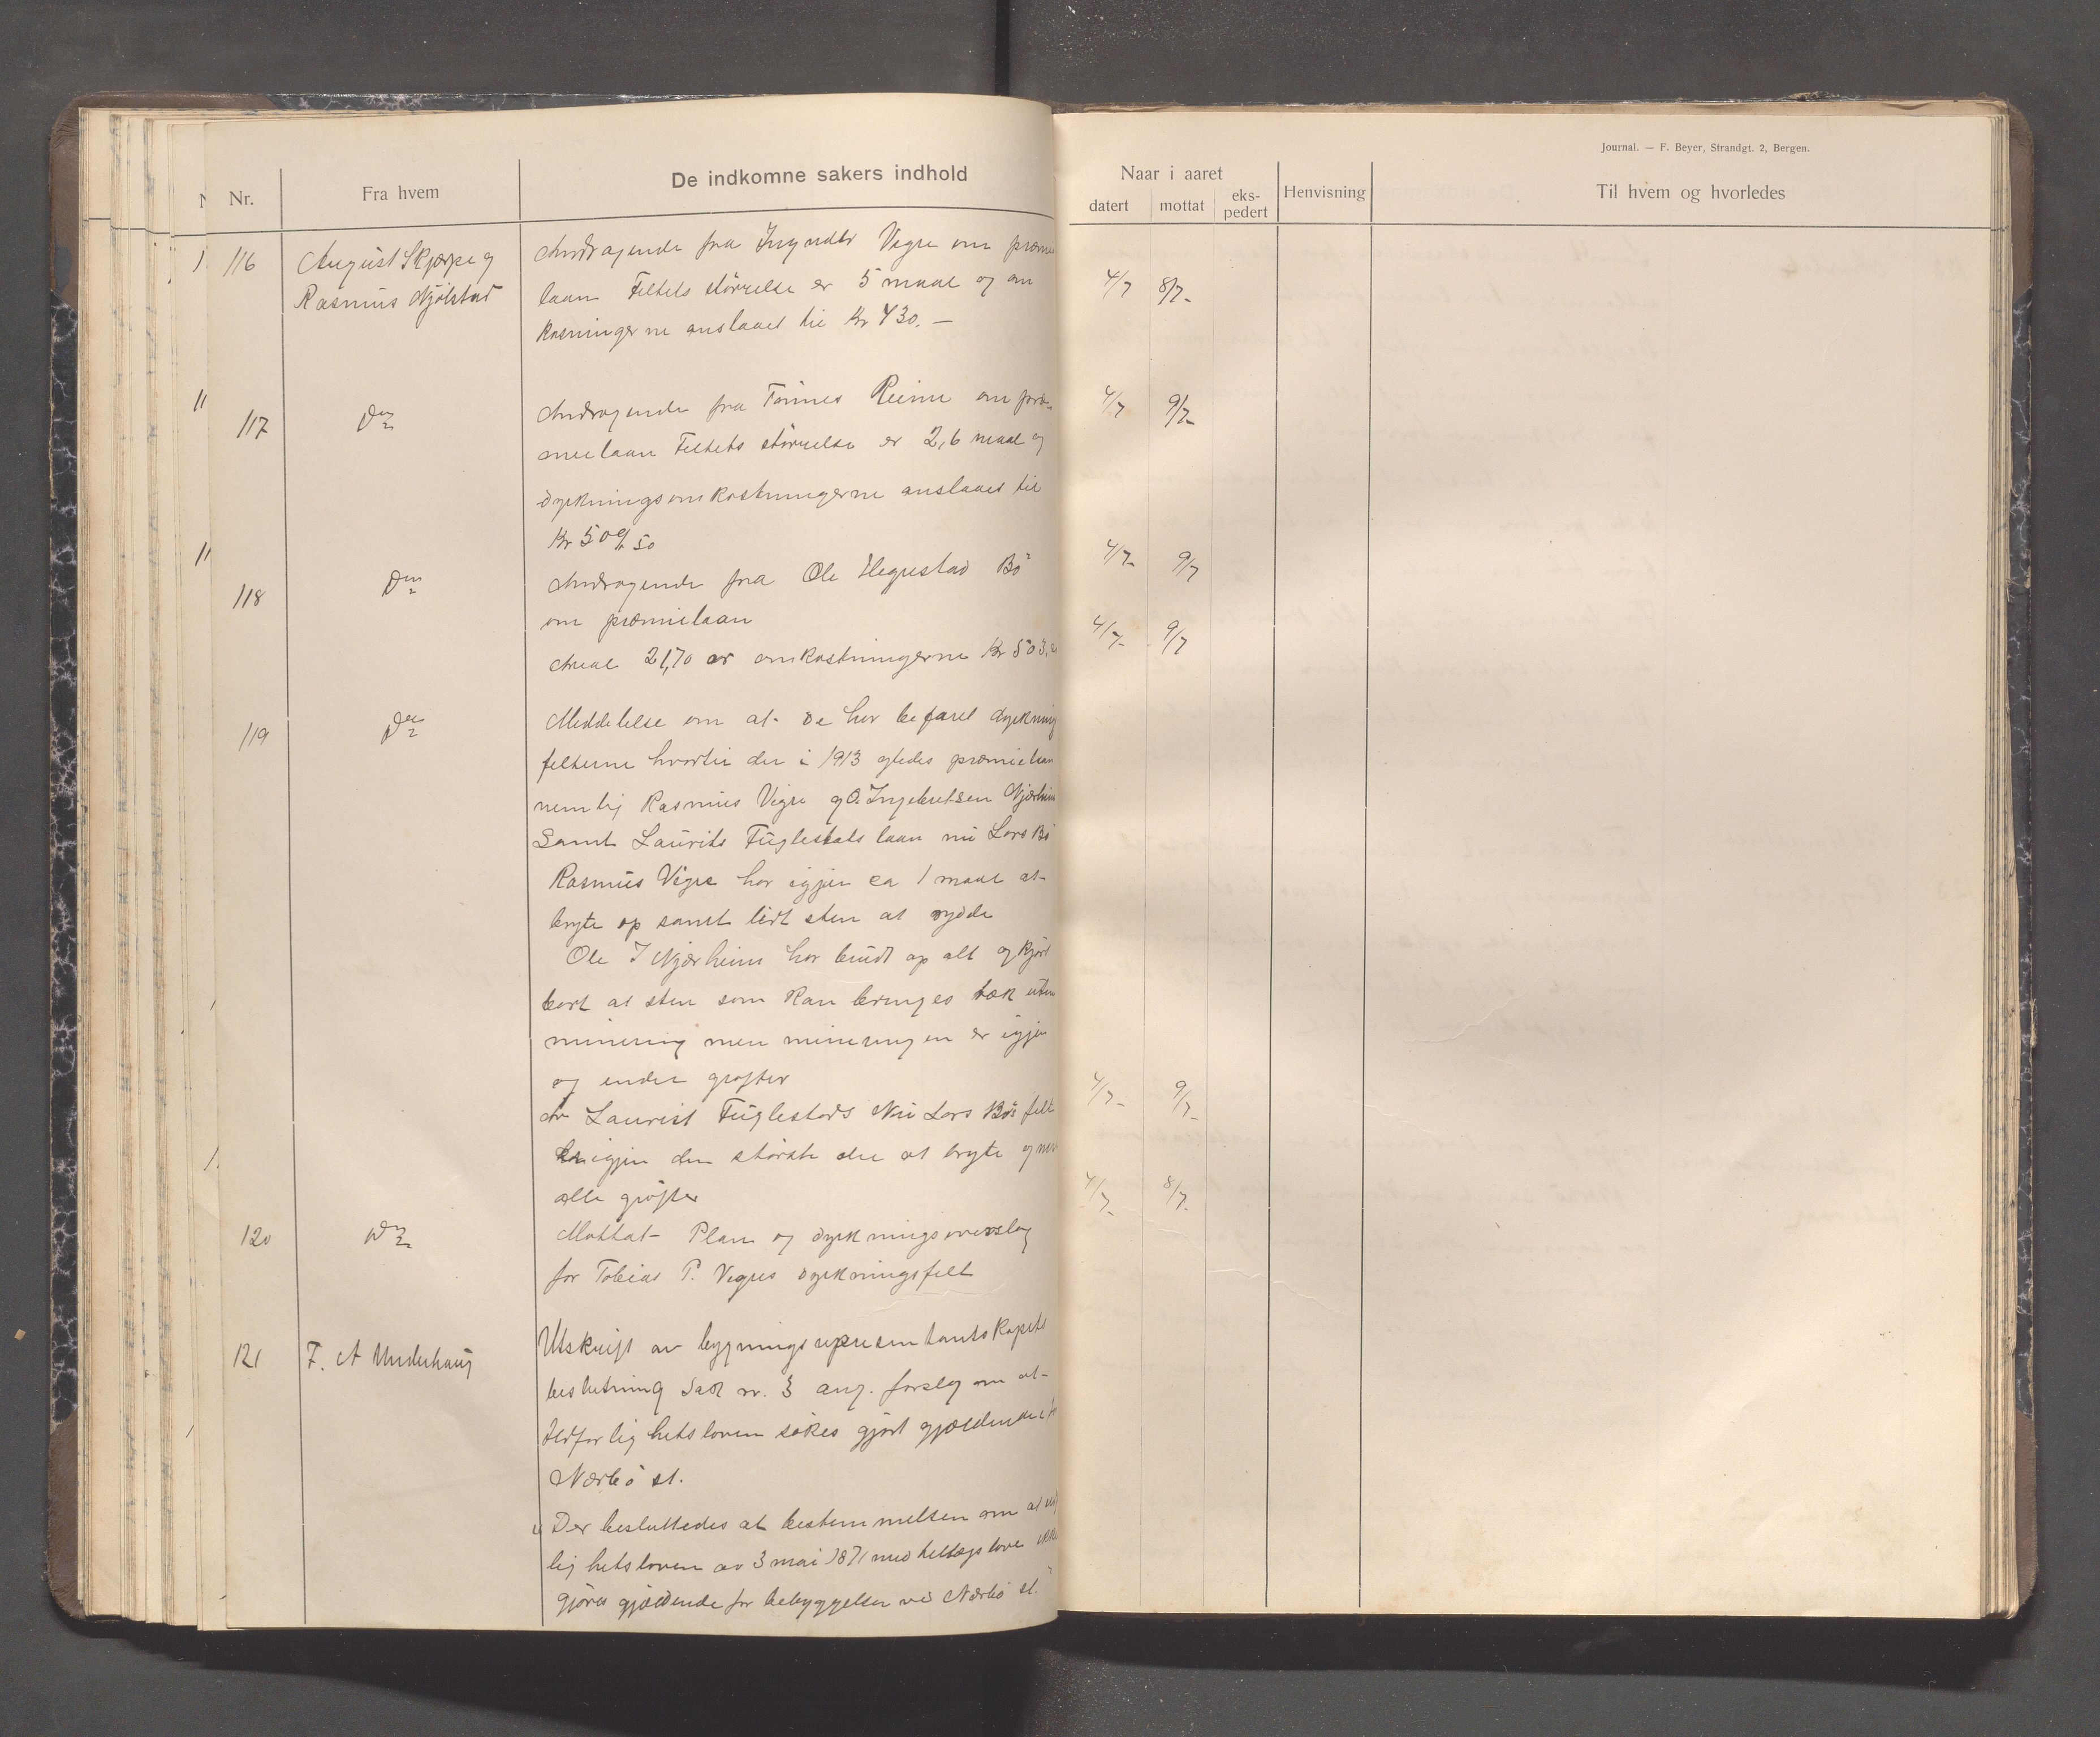 Journal. — F. Beyer, Strandgt. 2, Bergen.
Nr. Fra hvem De indkomne sakers indhold Naar i aaret datert mottat eks-pedert Henvisning Til hvem og hvorledes
116 August Skjærpe og Andragende fra Vigre om præmie
Rasmus Njølstad laan Feltets størrelse er 5 maal og om 4/7 8/7-
kosningerne anslaaet til Kr 430.—
117 Do Andragende fra Tønnes Reime om præ- 4/7 9/7-
mielaan Feltets størrelse er 2,6 maal og
dyrkningsomkostningerne anslaaet til
Kr 509,50
118 Do Andragende fra Ole Hegrestad Bö 4/7- 9/7
om præmielaan
Areal 21,70 ar omkostningerne Kr 503, 4/7- 9/7
119 Do Meddelelse om at de har befaret dyrkning
felterne hvortil der i 1913 ytedes præmielaan
nemlig Rasmus Vigre og O. Ingebretsen Njærheim
Samt Laurits Fuglestads laan nu Lars Bö
Rasmus Vigre har igjen ca 1 maal at
bryte op samt lidt sten at rydde
Ole I Njærheim har brudt op alt og kjørt
bort al sten som kan bringes væk uten
minering men mineringen er igjen
og endel grøfter
Av Laurist Fuglestads Nu Lars Bös felt 4/7- 9/7-
er igjen den største del at bryte og
alle grøfter 4/7- 8/7-
120 Do Mottat Plan og dyrkningsoverslag
for Tobias P. Vigres dyrkningsfelt
121 F. A Underhaug Utskrift av bygningsrepresentantskapets
beslutning Sak nr. 3 ang. forslag om at
ildfarlighetsloven søkes gjort gjældende
Nærbö st.
Der besluttedes at bestemmelsen om at
lighetsloven av 3 mai 1871 med tillægslove ikke
gjøres gjældende for bebyggelsen ved Nærbö st.